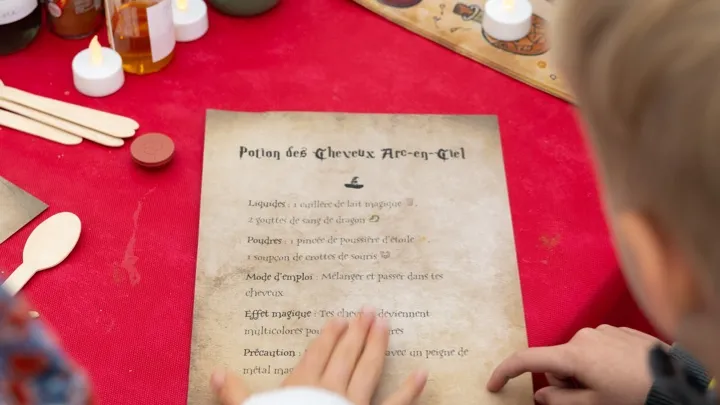 Potion des Cheveux Arc-en-Ciel
Liquides : 1 cuillère de lait magique
2 gouttes de sang de dragon
Poudres : 1 pincée de poussière d'étoile
1 soupçon de crottes de souris
Mode d'emploi : Mélanger et passer dans tes
cheveux
Effet magique : Tes deviennent
multicolores
Précaution : avec un peigne de
métal